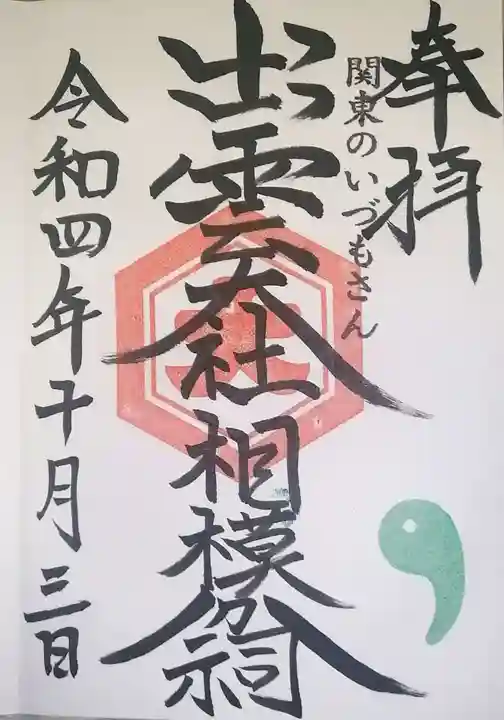 奉拝
関東のいづもさん
出雲大社相模分祠
令和四年十月三日